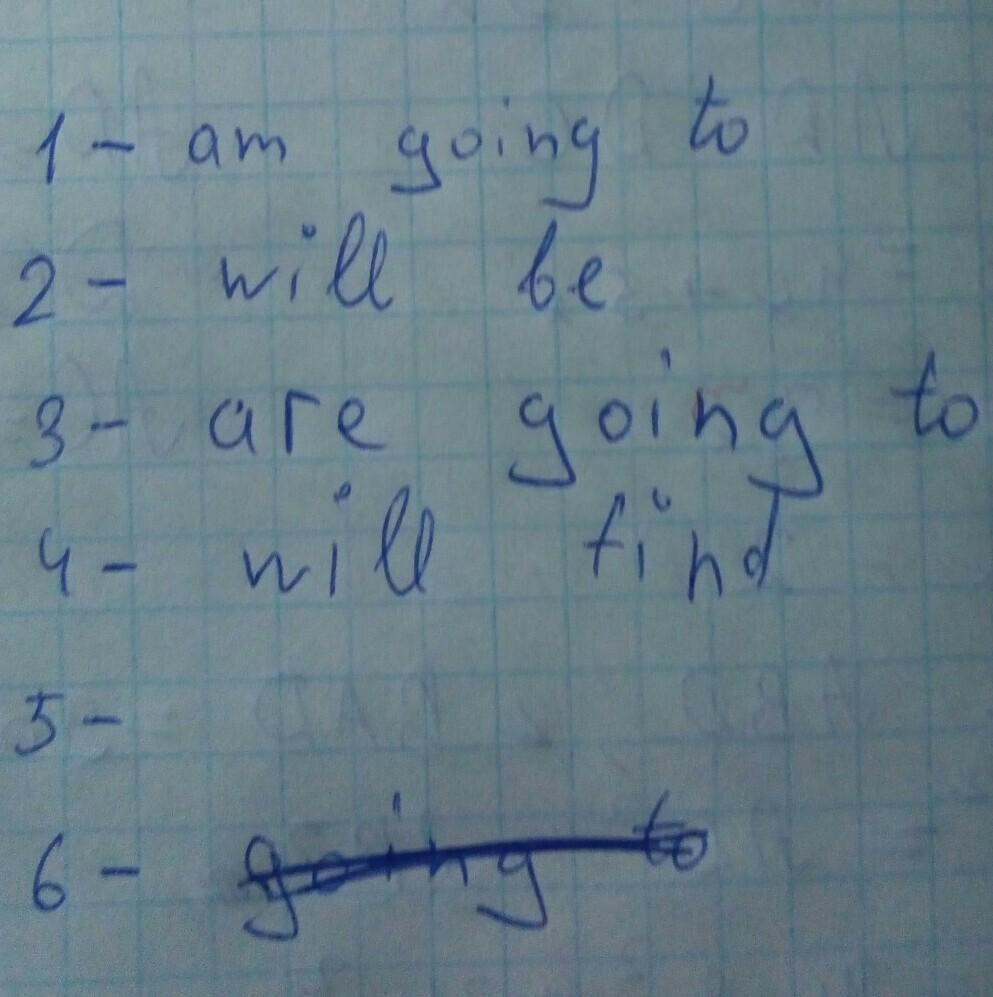 1 - am going to
2 - will be
3 - are going to
4 - will find
5 -
6 - going to